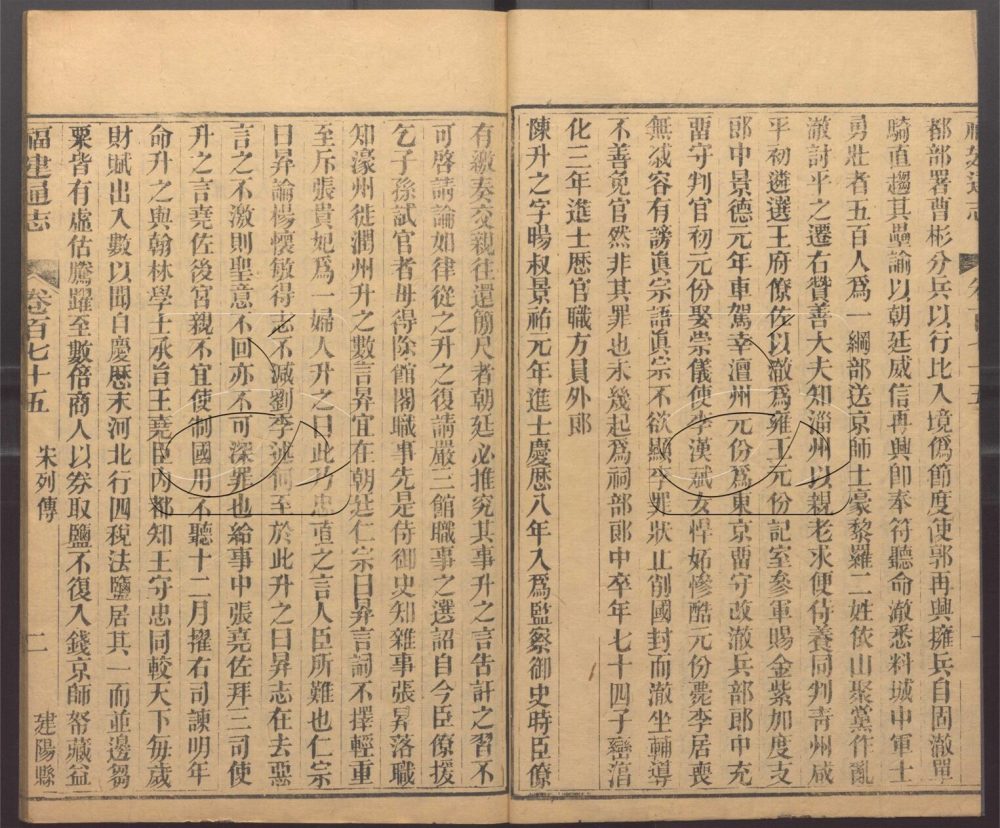 都部署曹彬分兵以行比入境僞節度使郭再興擁兵自固澈單
騎直趨其壘諭以朝廷威信再興卽奉符聽命澈悉料城中軍士
勇壯者五百人爲一綱部送京師土豪黎羅二姓依山聚黨作亂
澈討平之遷右贊善大夫知淄州以親老求便侍養同判靑州咸
平初遴選王府僚佐以澈爲雍王元份記室參軍賜金紫加度支
郎中景德元年車駕幸澶州元份爲東京畱守改澈兵部郎中充
畱守判官初元份娶崇儀使李漢斌女悍妬慘酷元份薨李居喪
無慼容有謗眞宗語眞宗不欲顯李罪狀止削國封而澈坐輔導
不善免官然非其罪也未幾起爲祠部郎中卒年七十四子巒淯
化三年進士歷官職方員外郎
陳升之字暘叔景祐元年進士慶歷八年入爲監察御史時臣僚
有繳奏交親往還簡尺者朝廷必推究其事升之言告訐之習不
可啓請論如律從之升之復請嚴三館職事之選詔自今臣僚援
乞子孫試官者毋得除館閣職事先是侍御史知雜事張昇落職
知濠州徙潤州升之數言昇宜在朝廷仁宗曰昇言詞不擇輕重
至斥張貴妃爲一婦人升之曰此乃忠直之言人臣所難也仁宗
曰昇論楊懷敏得志不減劉季述何至於此升之曰昇志在去惡
言之不激則聖意不回亦不可深罪也給事中張堯佐拜三司使
升之言堯佐後宮親不宜使制國用不聽十二月擢右司諫明年
命升之與翰林學士承旨王堯臣內都知王守忠同較天下每歲
財賦出入數以聞自慶歷末河北行四稅法鹽居其一而並邊芻
粟皆有虛估騰躍至數倍商人以劵取鹽不復入錢京師帑藏益
福建通志 卷百七十五 宋列傳 二 建陽縣